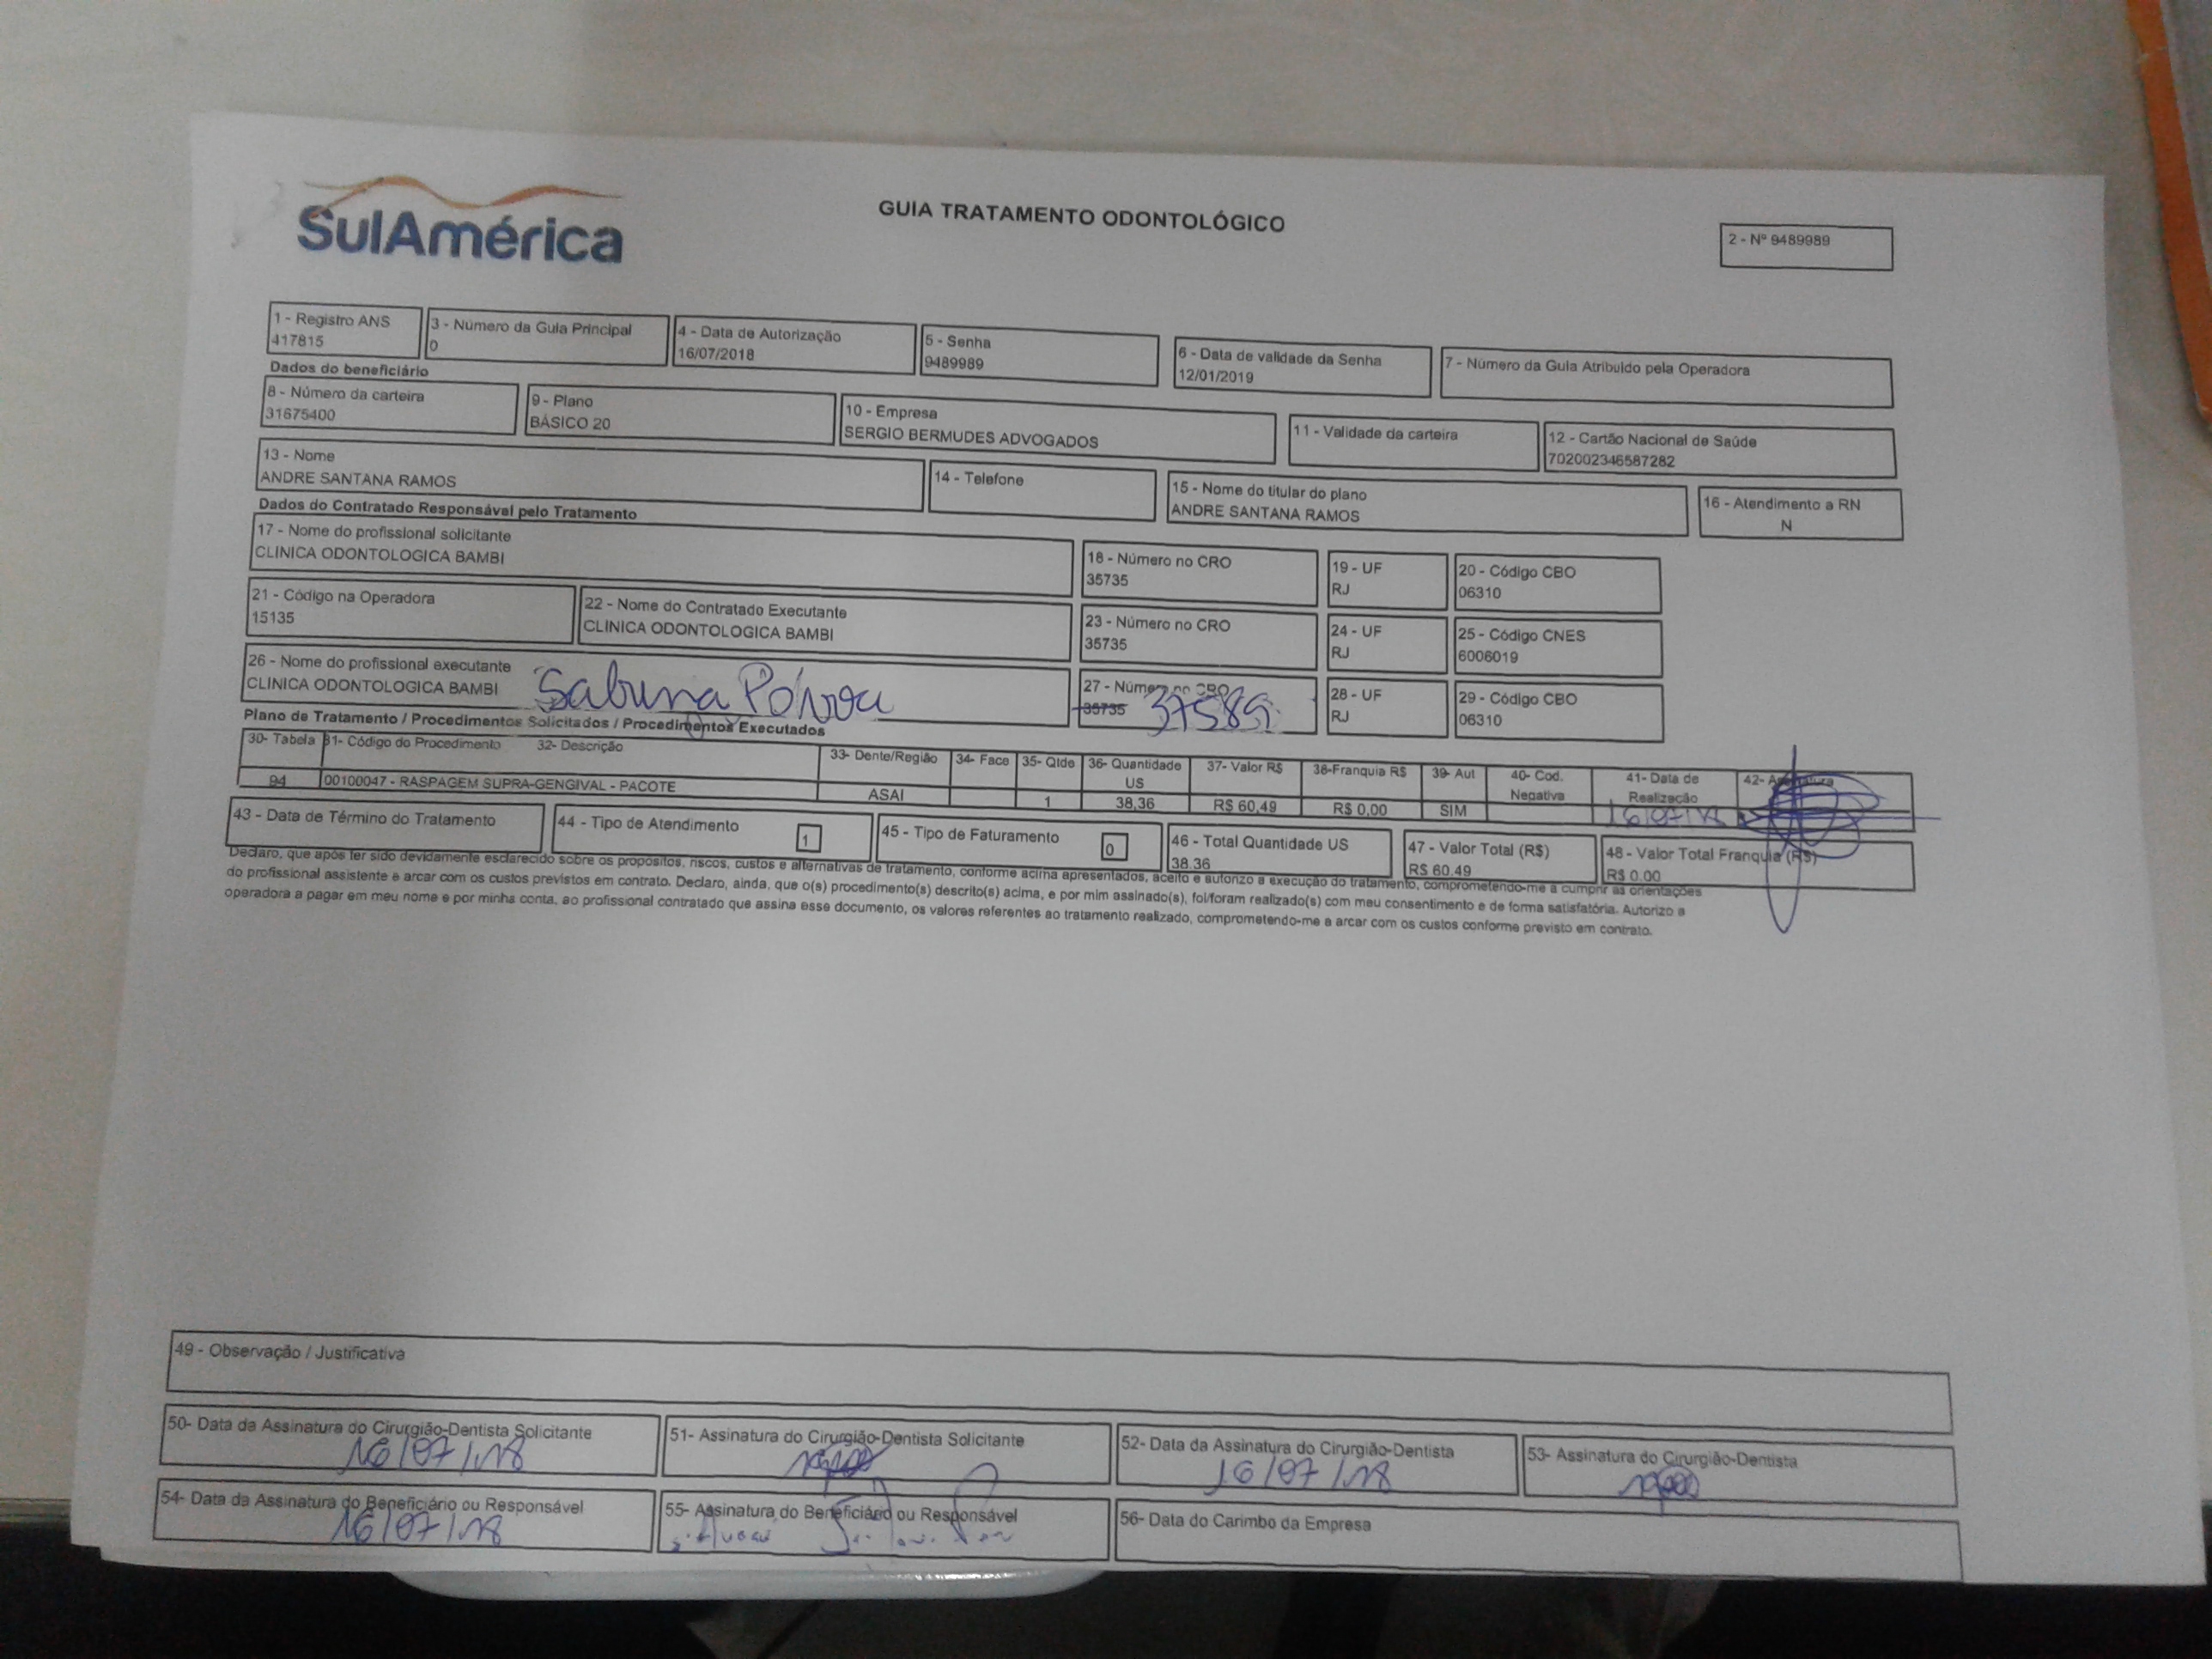 SulAmérica
GUIA TRATAMENTO ODONTOLÓGICO
2 - Nº 9489989
1 - Registro ANS
417815
3 - Número da Guia Principal
0
4 - Data de Autorização
16/07/2018
5 - Senha
9489989
6 - Data de validade da Senha
12/01/2019
7 - Número da Guia Atribuído pela Operadora
Dados do beneficiário
8 - Número da carteira
31675400
9 - Plano
BÁSICO 20
10 - Empresa
SERGIO BERMUDES ADVOGADOS
11 - Validade da carteira
12 - Cartão Nacional de Saúde
702002346587282
13 - Nome
ANDRE SANTANA RAMOS
14 - Telefone
15 - Nome do titular do plano
ANDRE SANTANA RAMOS
16 - Atendimento a RN
N
Dados do Contratado Responsável pelo Tratamento
17 - Nome do profissional solicitante
CLINICA ODONTOLOGICA BAMBI
18 - Número no CRO
35735
19 - UF
RJ
20 - Código CBO
06310
21 - Código na Operadora
15135
22 - Nome do Contratado Executante
CLINICA ODONTOLOGICA BAMBI
23 - Número no CRO
35735
24 - UF
RJ
25 - Código CNES
6006019
26 - Nome do profissional executante
CLINICA ODONTOLOGICA BAMBI Sabrina Póvoa
27 - Número no CRO
35735 37589
28 - UF
RJ
29 - Código CBO
06310
Plano de Tratamento / Procedimentos Solicitados / Procedimentos Executados
30- Tabela 31- Código do Procedimento 32- Descrição 33- Dente/Região 34- Face 35- Qtde 36- Quantidade US 37- Valor R$ 38-Franquia R$ 39- Aut 40- Cod. Negativa 41- Data de Realização 42- Assinatura
94 00100047 - RASPAGEM SUPRA-GENGIVAL - PACOTE ASAI 1 38,36 R$ 60,49 R$ 0,00 SIM 16/07/18
43 - Data de Término do Tratamento
44 - Tipo de Atendimento
1
45 - Tipo de Faturamento
0
46 - Total Quantidade US
38.36
47 - Valor Total (R$)
R$ 60.49
48 - Valor Total Franquia (R$)
R$ 0.00
Declaro, que após ter sido devidamente esclarecido sobre os propósitos, riscos, custos e alternativas de tratamento, conforme acima apresentados, aceito e autorizo a execução do tratamento, comprometendo-me a cumprir as orientações
do profissional assistente e arcar com os custos previstos em contrato. Declaro, ainda, que o(s) procedimento(s) descrito(s) acima, e por mim assinado(s), foi/foram realizado(s) com meu consentimento e de forma satisfatória. Autorizo a
operadora a pagar em meu nome e por minha conta, ao profissional contratado que assina esse documento, os valores referentes ao tratamento realizado, comprometendo-me a arcar com os custos conforme previsto em contrato.
49 - Observação / Justificativa
50- Data da Assinatura do Cirurgião-Dentista Solicitante
16/07/18
51- Assinatura do Cirurgião-Dentista Solicitante
52- Data da Assinatura do Cirurgião-Dentista
16/07/18
53- Assinatura do Cirurgião-Dentista
54- Data da Assinatura do Beneficiário ou Responsável
16/07/18
55- Assinatura do Beneficiário ou Responsável
56- Data do Carimbo da Empresa